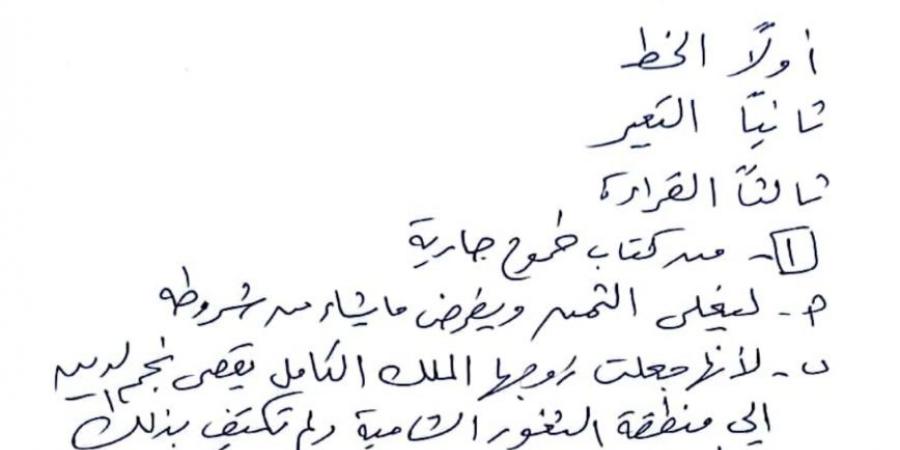 أولاً الخط
ثانياً التعبير
ثالثاً القراءة
١- من كتاب طموح جارية
م- ليغلى الثمن ويفرض ما يشاء من شروطه
ب- لأنها جعلت زوجها الملك الكامل يقصى نجم الدين
إلى منطقة الثغور الشامية ولم تكتفِ بذلك